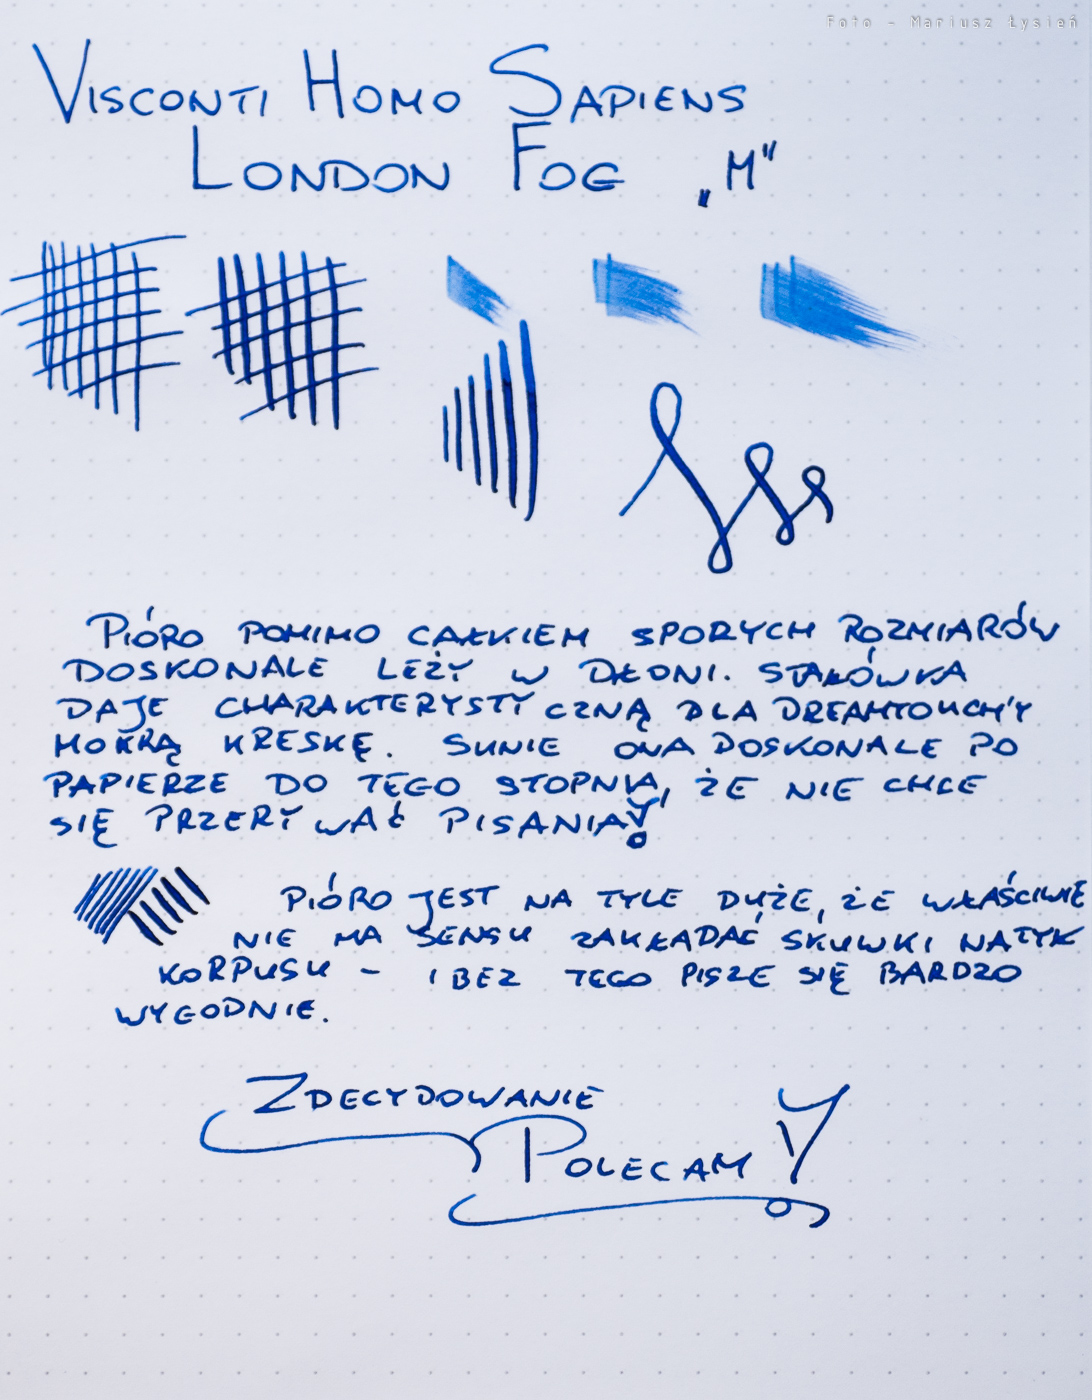 Foto - Mariusz Łysień
VISCONTI HOMO SAPIENS
LONDON FOG „M”
PIÓRO POMIMO CAŁKIEM SPORYCH ROZMIARÓW
DOSKONALE LEŻY W DŁONI. STALÓWKA
DAJE CHARAKTERYSTYCZNĄ DLA DREAMTOUCH'Y
MOKRĄ KRESKĘ. SUNIE ONA DOSKONALE PO
PAPIERZE DO TEGO STOPNIA, ŻE NIE CHCE
SIĘ PRZERYWAĆ PISANIA!
PIÓRO JEST NA TYLE DUŻE, ŻE WŁAŚCIWIE
NIE MA SENSU ZAKŁADAĆ SKUWKI NA TYŁ
KORPUSU - I BEZ TEGO PISZE SIĘ BARDZO
WYGODNIE.
ZDECYDOWANIE
POLECAM!